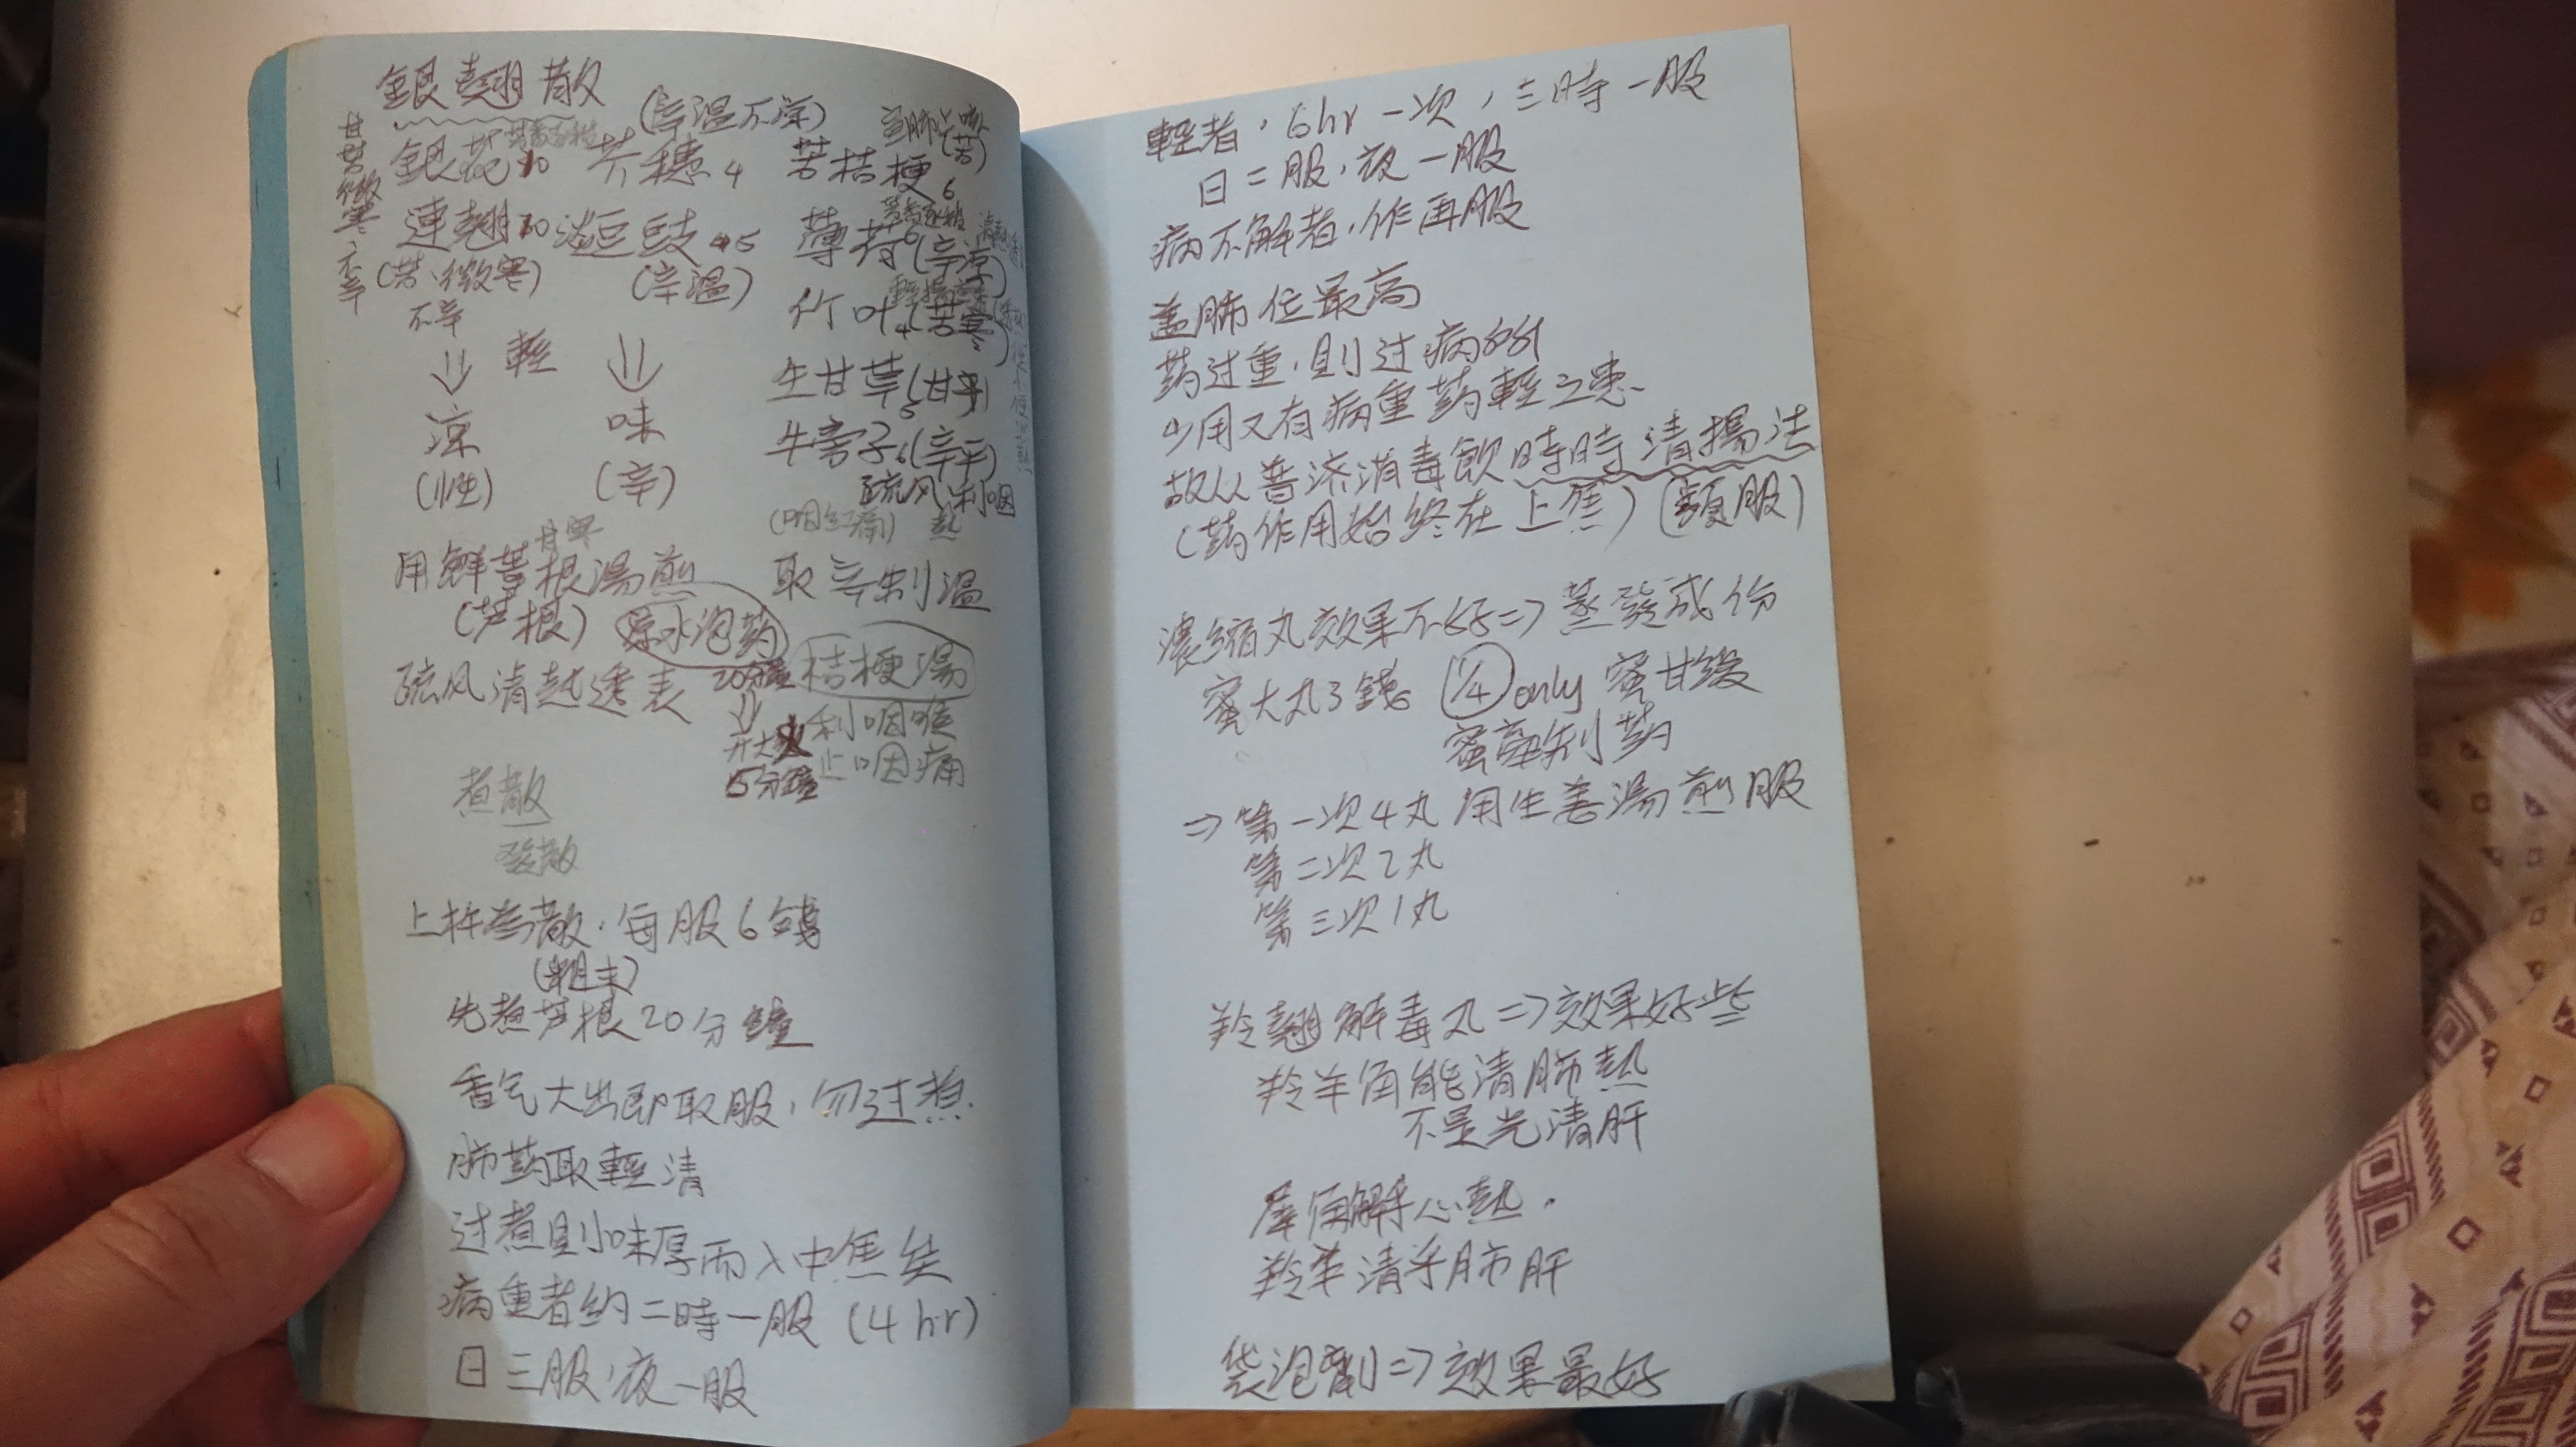 銀翹散
(辛温不漠)
甘苦微寒不辛
銀花10 芥穗4 苦桔梗6
連翹10 淡豆豉5 薄荷6(辛凉)
(苦、微寒) (辛温)
不辛
竹叶4(苦寒)
輕
⇓ ⇓
生甘草5(甘平)
凉 味
牛旁子6(辛平)
(性) (辛)
疏风 利咽
(咽红痛) 热
甘寒
用鮮葦根湯煎 取辛制温
(芦根) 凉水泡药
20分鐘 桔梗湯
疏风清热透表
⇓ 利咽喉
开大火 止咽痛
5分鐘
煮散
發散
上杵為散,每服6錢
(粗末)
先煮芦根20分鐘
香气大出即取服,勿过煮
肺药取輕清
过煮则味厚而入中焦矣
病重者約二時一服(4hr)
日三服,夜一服
輕者,6hr一次,三時一服
日二服,夜一服
病不解者,作再服
盖肺位最高
药过重,则过病所
少用又有病重药輕之患
故从普济消毒飲時時清揚法
(药作用始終在上焦)(頻服)
濃缩丸效果不好⇒蒸發成份
蜜大丸3錢 1/4 only 蜜甘缓
蜜能制药
⇒第一次4丸 用生姜湯煎服
第二次2丸
第三次1丸
羚翹解毒丸⇒效果好些
羚羊角能清肺热
不是光清肝
犀角解乎心热.
羚羊清乎肺肝
袋泡劑⇒效果最好